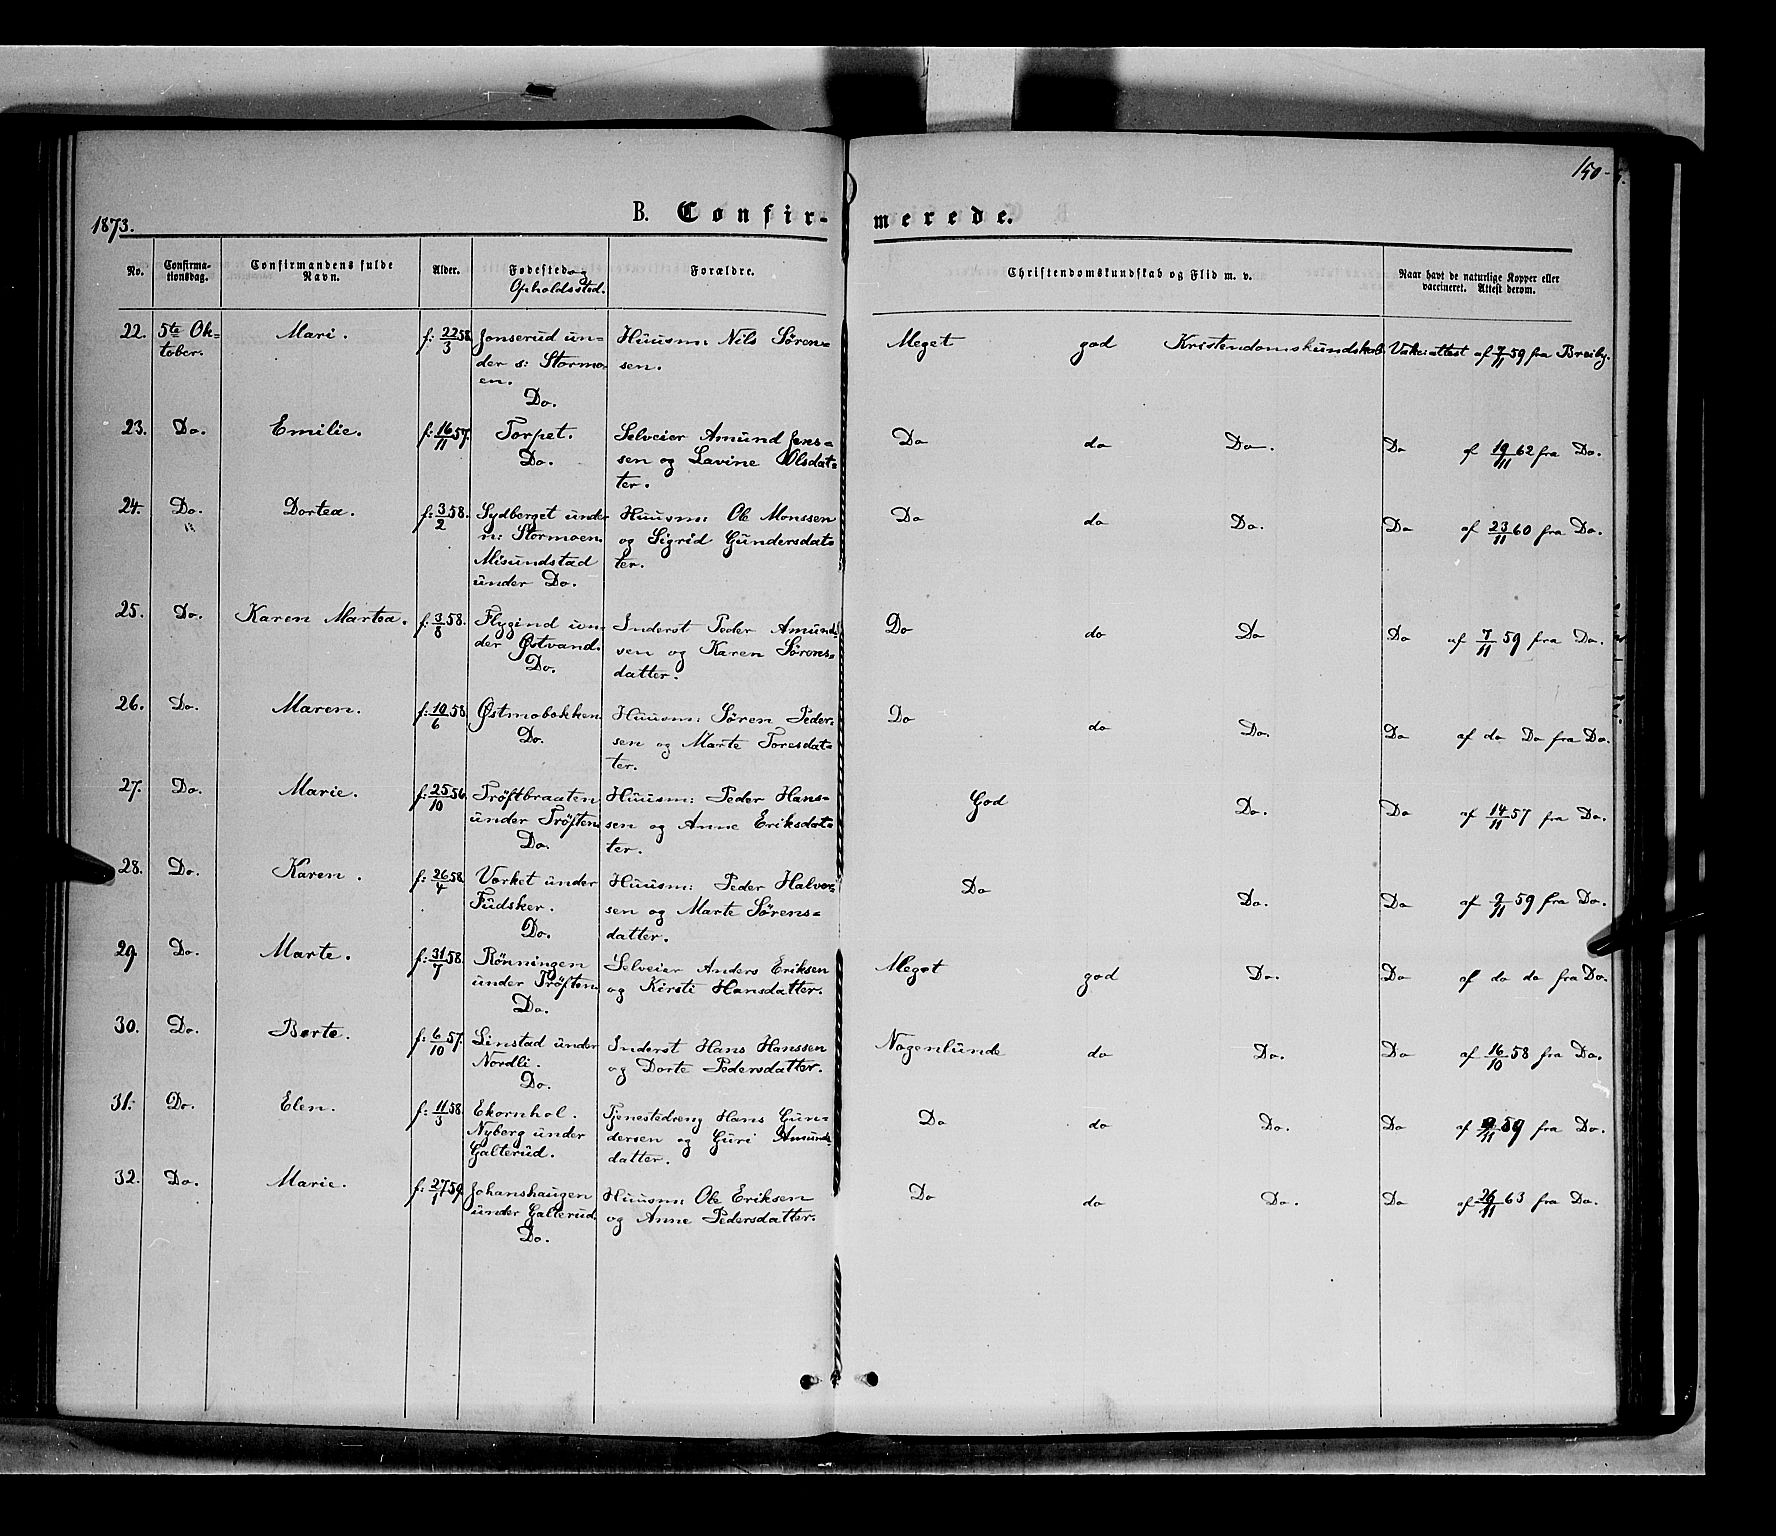 150-
1873.
B. Confir- merede.
No. Confirma-tionsdag. Confirmandens fulde Navn. Alder. Fødested og Opholdssted. Forældre. Christendomskundskab og Flid m. v. Naar havt de naturlige Kopper eller vaccineret. Attest derom.
22. 5te Ok= Mari. f: 22/3 58 Jonserud un= Huusm: Nils Sören= Meget god Kristendomskundskab Vakc:attest af 7/11 59 fra Breiby.
tober. der s: Stormo= sen.
en.
Do.
23. Do. Emilie. f: 16/11 57. Torpet. Selveier Amund Jens= Do do Do. Do af 19/11 62 fra Do.
Do. sen og Lavine Olsdat=
ter.
24. Do. Dortea. f: 3/2 58. Sydberget under Huusm: Ole Monssen Do do Do. Do af 23/11 60 fra Do.
n: Stormoen. og Sigrid Gundersdat=
Misundstad ter.
under Do.
25. Do. Karen Martea. f: 3/8 58. Flygind un= Inderst Peder Amund= Do do Do Do af 7/11 59 fra Do.
der Østvand. sen og Karen Sörens=
Do. datter.
26. Do. Maren. f: 10/6 58 Østmobakken. Huusm: Sören Peder= Do do Do. Do af do Do fra Do.
Do. sen og Marte Toresdat=
ter.
27. Do. Marie. f: 25/10 56. Tröftbraaten Huusm: Peder Hans= God Do. Do af 14/11 57 fra Do.
under Tröften. sen og Anne Eriksdat=
Do. ter.
28. Do. Karen. f: 26/4 58 Værket under Huusm: Peder Halvor= Do Do. Do af 9/11 59 fra Do.
Fudsker. sen og Marte Sörens=
Do. datter.
29. Do. Marte. f: 31/7 58. Rönningen Selveier Anders Eriksen Meget god Do. Do af do do fra Do.
under Tröften. og Kirsti Hansdatter.
Do.
30. Do. Berte. f: 6/10 57. Linstad under Inderst Hans Hanssen Nogenlunde do Do. Do af 16/10 58 fra Do.
Nordli. og Dorte Pedersdatter.
Do.
31. Do. Elen. f: 11/3 58 Ekornhol. Tjenestedreng Hans Gun= Do do Do. Do af 9/11 59 fra Do.
Nyberg under dersen og Guri Amunds=
Galterud. datter.
32. Do. Marie. f: 27/1 59. Johanshaugen Huusm: Ole Eriksen Do do Do. Do af 26/11 63 fra Do.
under Galterud. og Anne Pedersdatter.
Do.